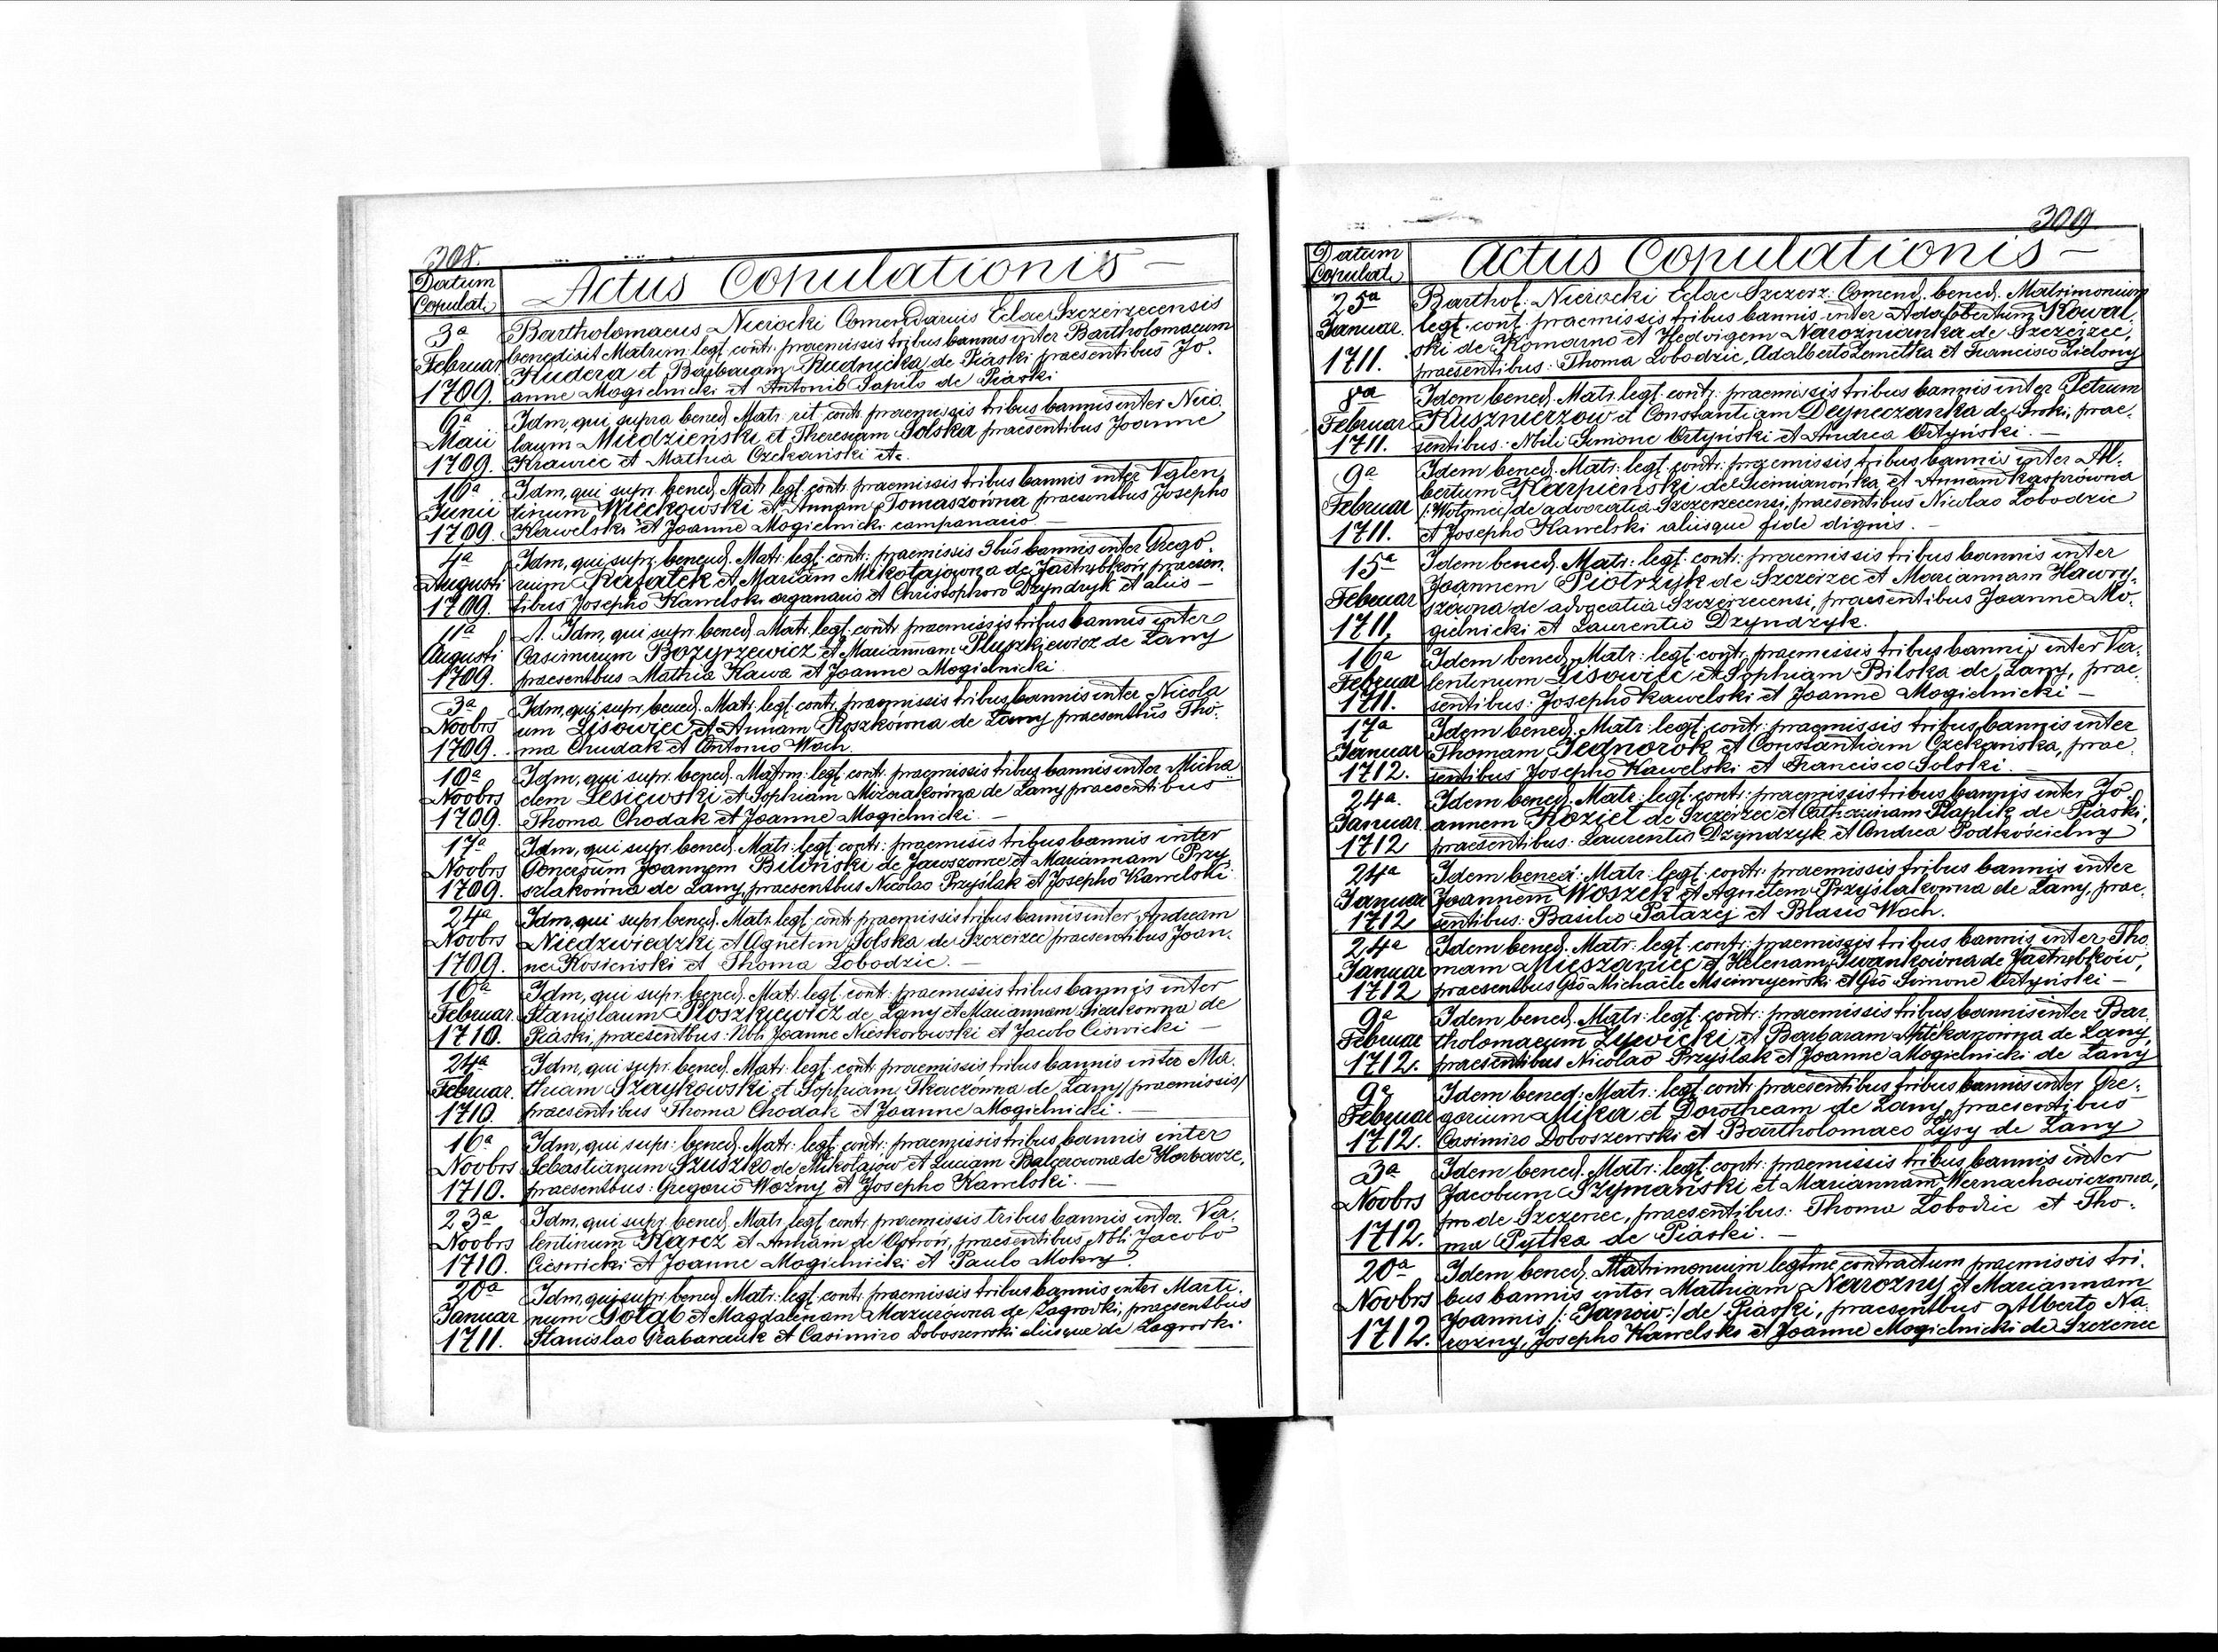 308.
Datum
Copulat.
Actus Copulationis —
3a
Februar
1709.
Bartholomaeus Nierocki Comendarius Eclae Szczerzecensis
benedixit Matrim: legt. contr. praemissis tribus bannis inter Bartholomaeum
Kudera et Barbaram Rudnicka de Piaski praesentibus Jo-
anne Mogielnicki et Antonio Sapilo de Piaski
9a
Maii
1709.
Idm, qui supra bened. Matr. rit. contr. praemissis tribus bannis inter Nico-
laum Miedzieński et Theresiam Solska praesentibus Joanne
Krawiec et Mathia Czekański etc.
16a
Junii
1709.
Idm, qui supr. bened. Matr. legt. contr. praemissis tribus bannis inter Valen-
tinum Wieckowski et Annam Tomaszówna praesentbus Josepho
Kawelski et Joanne Mogielnicki campanario. —
4a
Augusti
1709.
Idm, qui supr. bened. Matr. legt. contr: praemissis 3bus bannis inter Grego-
rium Ratatek et Mariam Mikołajowna de Jastrzbków, praesen-
tibus Josepho Kawelski organario et Christophoro Dzyndzyk et aliis —
11a
Augusti
1709.
A. Idm, qui supr. bened. Matr. legt. contr praemissis tribus bannis inter
Casimirum Bozyrzewicz et Mariannam Pluszkiewicz de Lany
praesentbus Mathia Kawa et Joanne Mogielnicki.
3a
Noobrs
1709.
Idm, qui supr. bened. Matr. legt. contr. praemissis tribus bannis inter Nicola-
um Lisowiec et Annam Roszkówna de Lany praesentbus Tho-
ma Chudak et Antonio Woch.
10a
Noobrs
1709.
Idm, qui supr. bened. Matrm: legt. contr: praemissis tribus bannis inter Micha-
elem Lesiewski et Sophiam Mizorakówna de Lany praesentibus
Thoma Chodak et Joanne Mogielnicki. —
17a
Noobrs
1709.
Idm, qui supr. bened. Matr. legt. contr: praemissis tribus bannis inter
Generosum Joannem Biliński de Jaroszowce et Mariannam Przy-
szlakówna de Lany, praesentbus Nicolao Przyślak et Josepho Kawelski
24a
Noobrs
1709.
Idm, qui supr bened. Matr. legt. contr praemissis tribus bannis inter Andream
Niedzwiedzki et Agnetem Solska de Szczerzec praesentibus Joan-
ne Kosieński et Thoma Lobodzic. —
16a
Februar.
1710.
Idm, qui supr. bened. Matr. legt. contr. praemissis tribus bannis inter
Stanislaum Ploszkiewicz de Lany et Mariannam Siarkowna de
Piaski, praesentbus: Nbli Joanne Nieskorowski et Jacobo Ciswicki —
24a
Februar.
1710.
Idm, qui supr. bened. Matr: legt. contr praemissis tribus bannis inter Ma-
thiam Szaykowski et Sophiam Tkaczówna de Lany /praemissis/
praesentibus Thoma Chodak et Joanne Mogielnicki. —
16a
Noobrs
1710.
Idm, qui supr: bened. Matr: legt. contr: praemissis tribus bannis inter
Sebastianum Szuszko de Mikołajow et Luciam Balcerowna de Horbacze,
praesentbus: Gregorio Wozny et Josepho Kawelski. —
23a
Noobrs
1710.
Idm, qui supr. bened. Matr. legt. contr. praemissis tribus bannis inter Va-
lentinum Karcz et Annam de Ostrow, praesentibus Nbli Jacobo
Cieswicki et Joanne Mogielnicki et Paulo Mokry.
20a
Januar
1711.
Idm, qui supr. bened. Matr: legt. contr. praemissis tribus bannis inter Marti-
num Gołąb et Magdalenam Mazurówna de Zagrodki, praesentbus
Stanislao Grabarczuk et Casimiro Doboszewski aliisque de Zagrodki.
309.
Datum
Copulat.
Actus Copulationis —
25a
Januar.
1711.
Barthol: Nierocki Eclae Szczerz: Comend. bened. Matrimonium
legt. cont. praemissis tribus bannis inter Adalbertum Kowal-
ski de Komarno et Hedvigem Naroznianka de Szczerzec,
praesentibus: Thoma Lobodzic, Adalberto Zemełka et Francisco Zielony
8a
Februar
1711.
Idem bened. Matr. legt. contr: praemissis tribus bannis inter Petrum
Kusznierzow et Constantiam Deyneczanka de Sroki, prae-
sentibus: Nbili Simone Ortyński et Andrea Ortyński. —
9a
Februar
1711.
Idem bened. Matr: legt. contr: praemissis tribus bannis inter Al-
bertum Karpieński de Siemianówka et Annam Kasprówna
/: Wołoniec/ de advocatia Szczerzecensi, praesentibus Nicolao Lobodzic
et Josepho Kawelski aliisque fide dignis. —
15a
Februar
1711.
Idem bened. Matr: legt. contr: praemissis tribus bannis inter
Joannem Piotrzyk de Szczerzec et Mariannam Hawry-
szowna de advocatia Szczerzecensi, praesentibus Joanne Mo-
gielnicki et Laurentio Dzyndzyk.
16a
Februar
1711.
Idem bened. Matr: legt. contr: praemissis tribus bannis inter Va-
lentinum Lisowiec et Sophiam Bilska de Lany, prae-
sentibus: Josepho Kawelski et Joanne Mogielnicki —
17a
Januar
1712.
Idem bened. Matr: legt. contr: praemissis tribus bannis inter
Thomam Jednorok et Constantiam Czekańska, prae-
sentibus Josepho Kawelski et Francisco Solski. —
24a.
Januar.
1712
Idem bened. Matr: legt. contr: praemissis tribus bannis inter Jo-
annem Kozieł de Szczerzec et Catharinam Kłaplik de Piaski,
praesentibus: Laurentio Dzyndzyk et Andrea Podkościelny
24a
Januar
1712
Idem bened: Matr: legt. contr: praemissis tribus bannis inter
Joannem Woszek et Agnetem Przyslakowna de Lany, prae-
sentibus: Basilio Patazej et Blasio Woch.
24a
Januar
1712
Idem bened. Matr: legt. contr: praemissis tribus bannis inter Tho-
mam Mieszaniec et Helenam Iwankówna de Jastrzbków,
praesentbus Gso Michaele Msciwujewski et Gso Simone Ortyński —
9a
Februar
1712.
Idem bened. Matr: legt. contr: praemissis tribus bannis inter Bar-
tholomaeum Zywicki et Barbaram Aptekarzowna de Lany,
praesentibus Nicolao Przyślak et Joanne Mogielnicki de Lany
9a
Februar
1712.
Idem bened: Matr: legt. contr praesentibus tribus bannis inter Gre-
gorium Mika et Dorotheam de Lany, praesentibus
Casimiro Doboszewski et Bartholomaeo Lysy de Lany
3a
Noobrs
1712.
Idem bened. Matr: legt. contr: praemissis tribus bannis inter
Jacobum Szymański et Mariannam Wernachowiczowna,
pro de Szczerzec, praesentibus: Thoma Lobodzic et Tho-
ma Pytka de Piaski. —
20a
Noobrs
1712.
Idem bened. Matrimonium legtme contractum praemissis tri-
bus bannis inter Mathiam Narozny et Mariannam
Joannis /: Janow :/ de Piaski, praesentbus Alberto Na-
rozny, Josepho Kawelski et Joanne Mogielnicki de Szczerzec